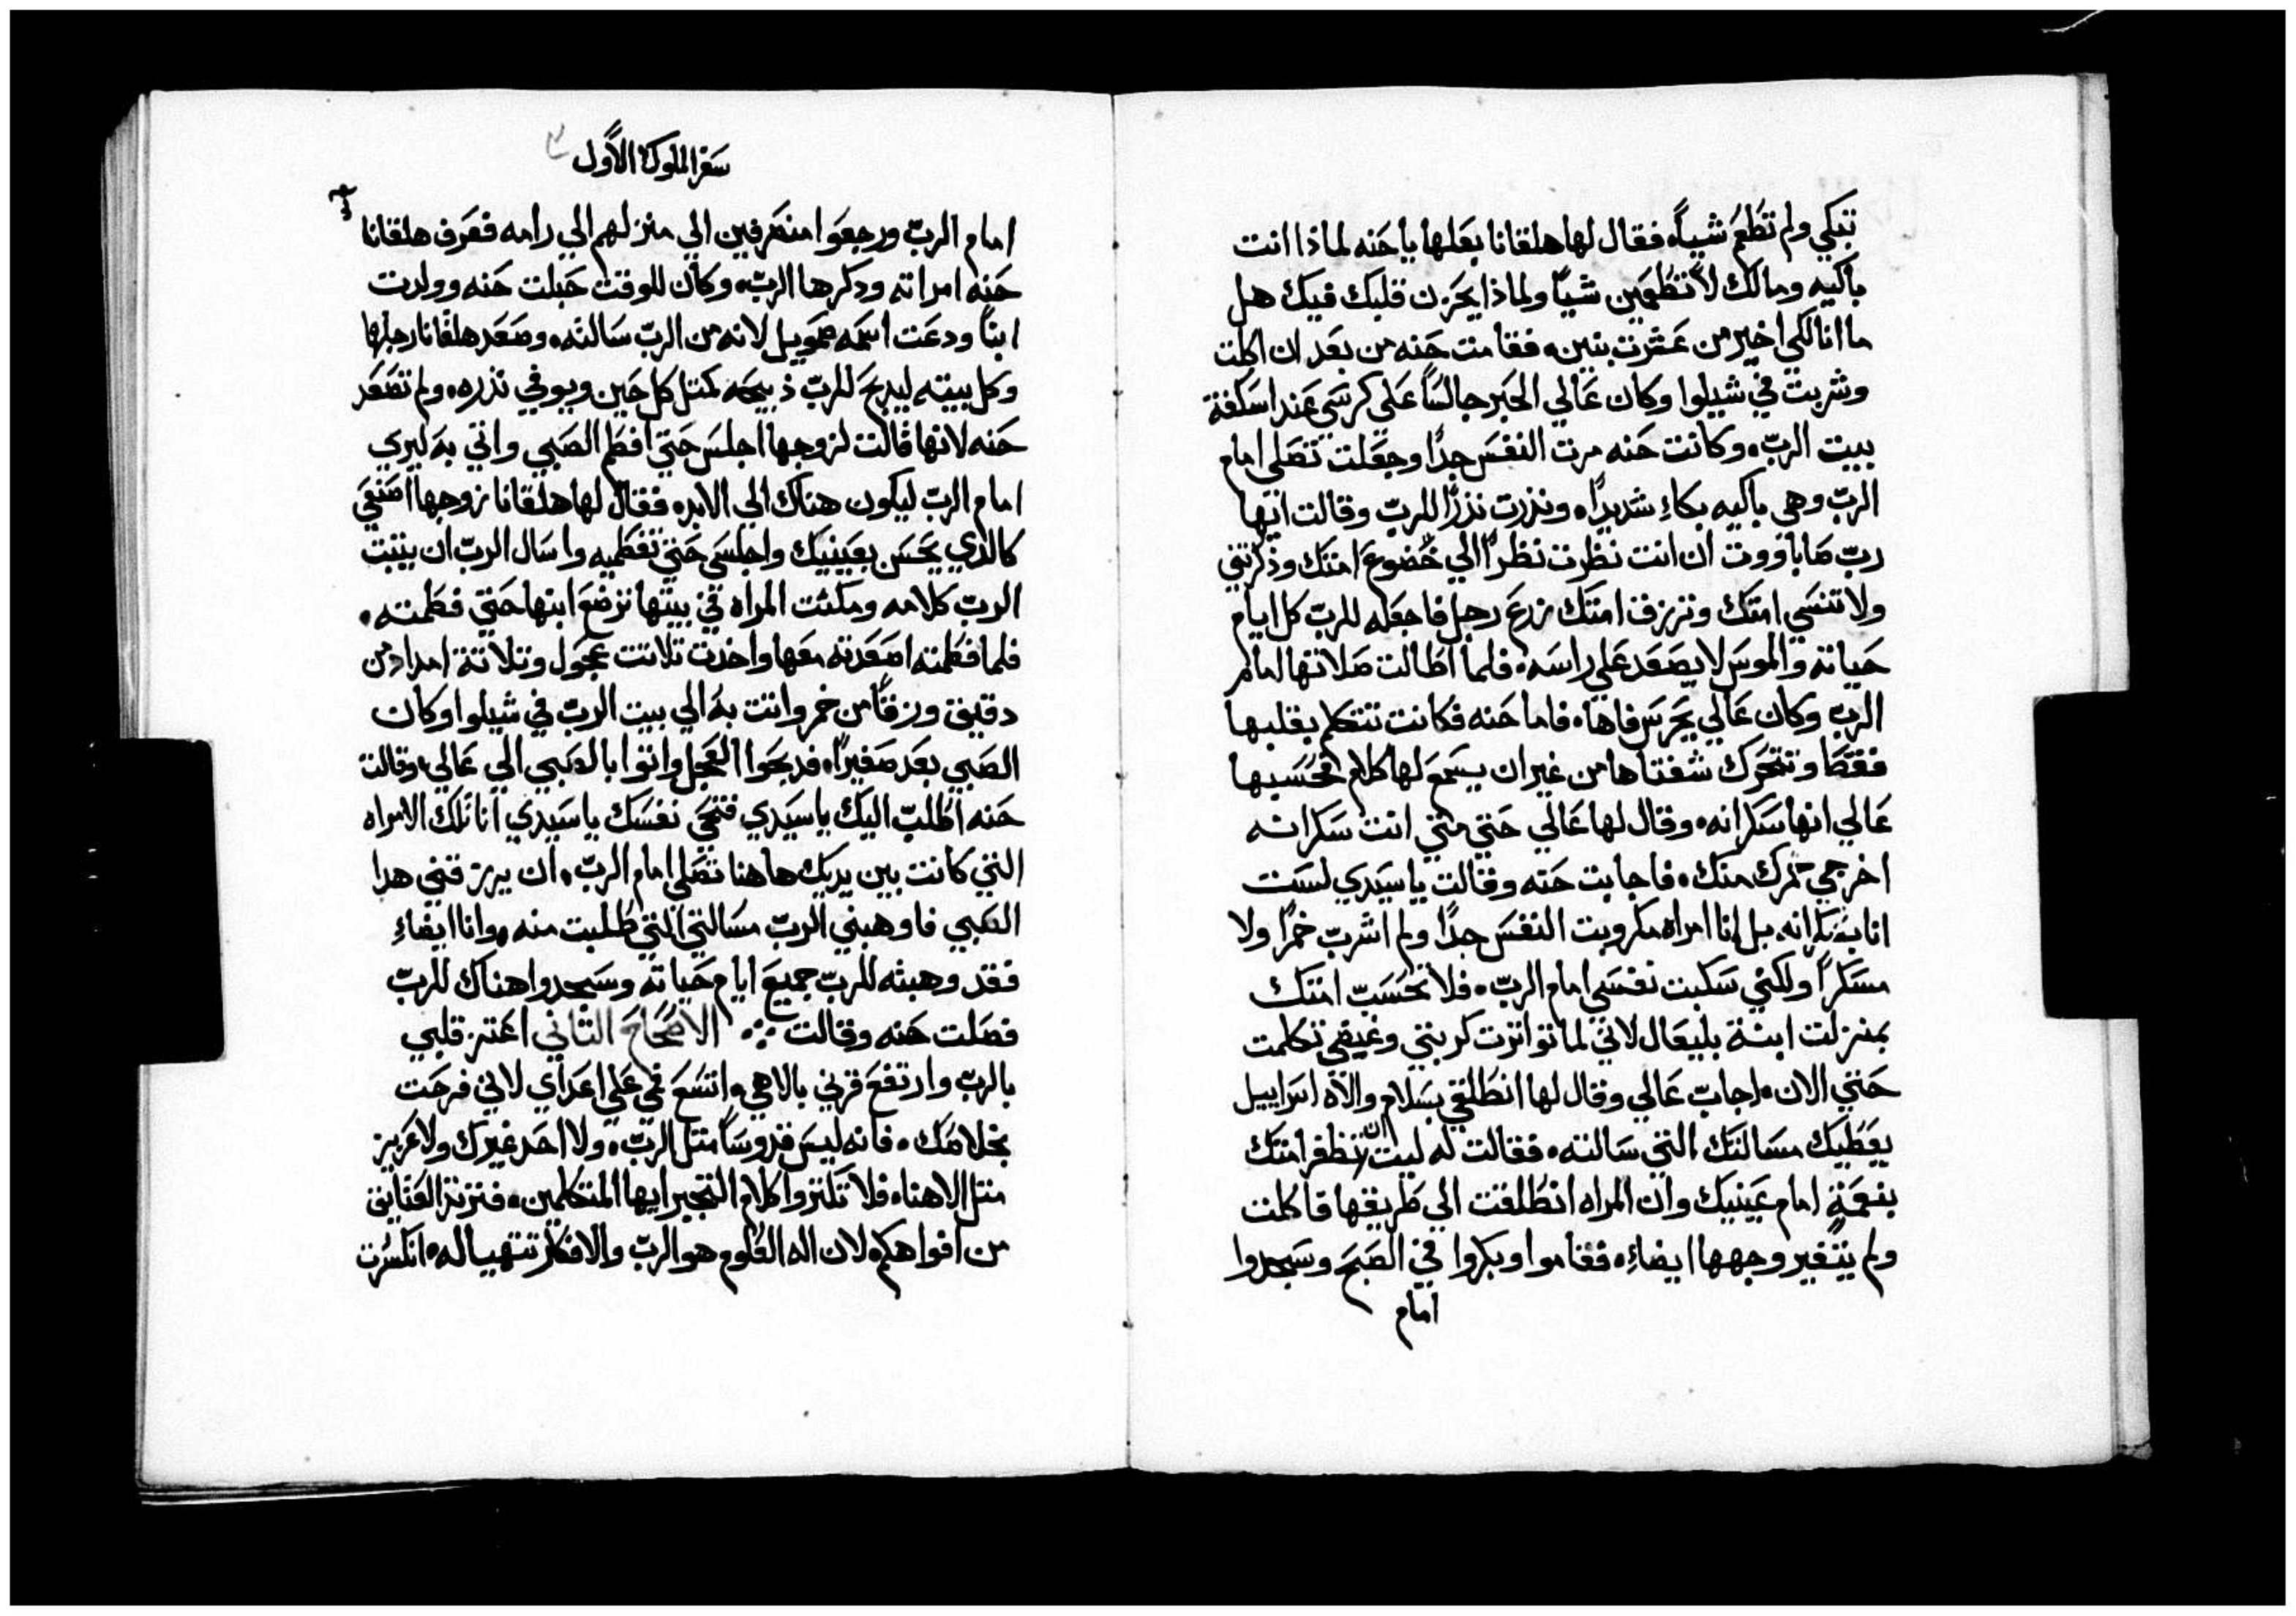 تبكي ولم تطعم شياً. فقال لها هلقانا بعلها يا حنه لماذا انت
باكيه ومالك لا تطعمين شياً ولماذا يحزن قلبك فيك هل
ما انا لكي اخير من عشرت بنين. فقامت حنه من بعد ان اكلت
وشربت في شيلوا وكان عالي الحبر جالساً على كرسي عند اسكفة
بيت الرب. وكانت حنه مرت النفس جداً وجعلت تصلى امام
الرب وهى باكيه بكاءِ شديداً. ونذرت نذراً للرب وقالت ايها
رب صاباووت ان انت نظرت نظراً الي خضوع امتك وذكرتني
ولا تنسي امتك وترزق امتك زرع رجل فاجعله للرب كل ايام
حياته والموس لا يصعد على راسه. فلما اطالت صلاتها امام
الرب وكان عالي يحرس فاها. فاما حنه فكانت تتكلم بقلبها
فقط وتتحرك شفتاها من غير ان يسمع لها كلام فحسبها
عالي انها سكرانه. وقال لها عالي حتي متي انت سكرانه
اخرجي خمرك منك. فاجابت حنه وقالت يا سيدي لست
انا بسكرانه بل انا امراه مكروبت النفس جداً ولم اشرب خمراً ولا
مسكراً ولكني سكبت نفسى امام الرب. فلا تحسب امتك
بمنزلت ابنة بليعال لاني لما تواترت كربتي وغيضي تكلمت
حتي الان. اجاب عالي وقال لها انطلقي بسلام والاه اسراييل
يعطيك مسالتك التي سالته. فقالت له ليت ان تظفر امتك
بنعمةٍ امام عينيك وان المراه انطلقت الي طريقها فاكلت
ولم يتغير وجهها ايضاءِ. فقاموا وبكروا في الصبح وسجدوا
امام
سفر الملوك الأول
امام الرب ورجعوا منصرفين الي منزلهم الي رامه فعرف هلقانا
حنه امراته ودكرها الرب. وكان للوقت حبلت حنه وولدت
ابناً ودعت اسمه صمويل لانه من الرب سالته. وصعد هلقانا رجلها
وكل بيته ليدبح للرب ذبيحه كمتل كل حين ويوفي نذره. ولم تصعد
حنه لانها قالت لزوجها اجلس حتي افطم الصبي واتي به ليري
امام الرب ليكون هناك الي الابد. فقال لها هلقانا زوجها اصنعي
كالذي يحسن بعينيك واجلسي حتي تفطميه واسال الرب ان يتبت
الرب كلامه ومكثت المراه في بيتها ترضع ابنها حتي فطمته.
فلما فطمته اصعدته معها واخدت تلاتت عجول وتلاتة امداد من
دقيق وزقاً من خمر واتت به الي بيت الرب في شيلوا وكان
الصبي بعد صغيراً. فدبحوا العجل واتوا بالصبي الي عالي وقالت
حنه اطلب اليك يا سيدي فتحي نفسك يا سيدي انا تلك الامراه
التي كانت بين يديك هاهنا تصلى امام الرب. ان يرزقني هدا
الصبي فاوهبني الرب مسالتي التي طلبت منه. وانا ايضاءِ
فقد وهبته للرب جميع ايام حياته وسجدوا هناك للرب
فصلت حنه وقالت الاصحاح التاني اعتز قلبي
بالرب وارتفع قرني بالاهي. واتسع في علي اعداي لاني فرحت
بخلاصك. فانه ليس قدوساً متل الرب. ولا احد غيرك ولا عزيز
متل الاهنا. فلا تلتزوا كلام التجبر ايها المتكلمين. فتزنز العتايق
من افواهكم لان اله العلوم هو الرب والافكار تتهيا له. انكسرت